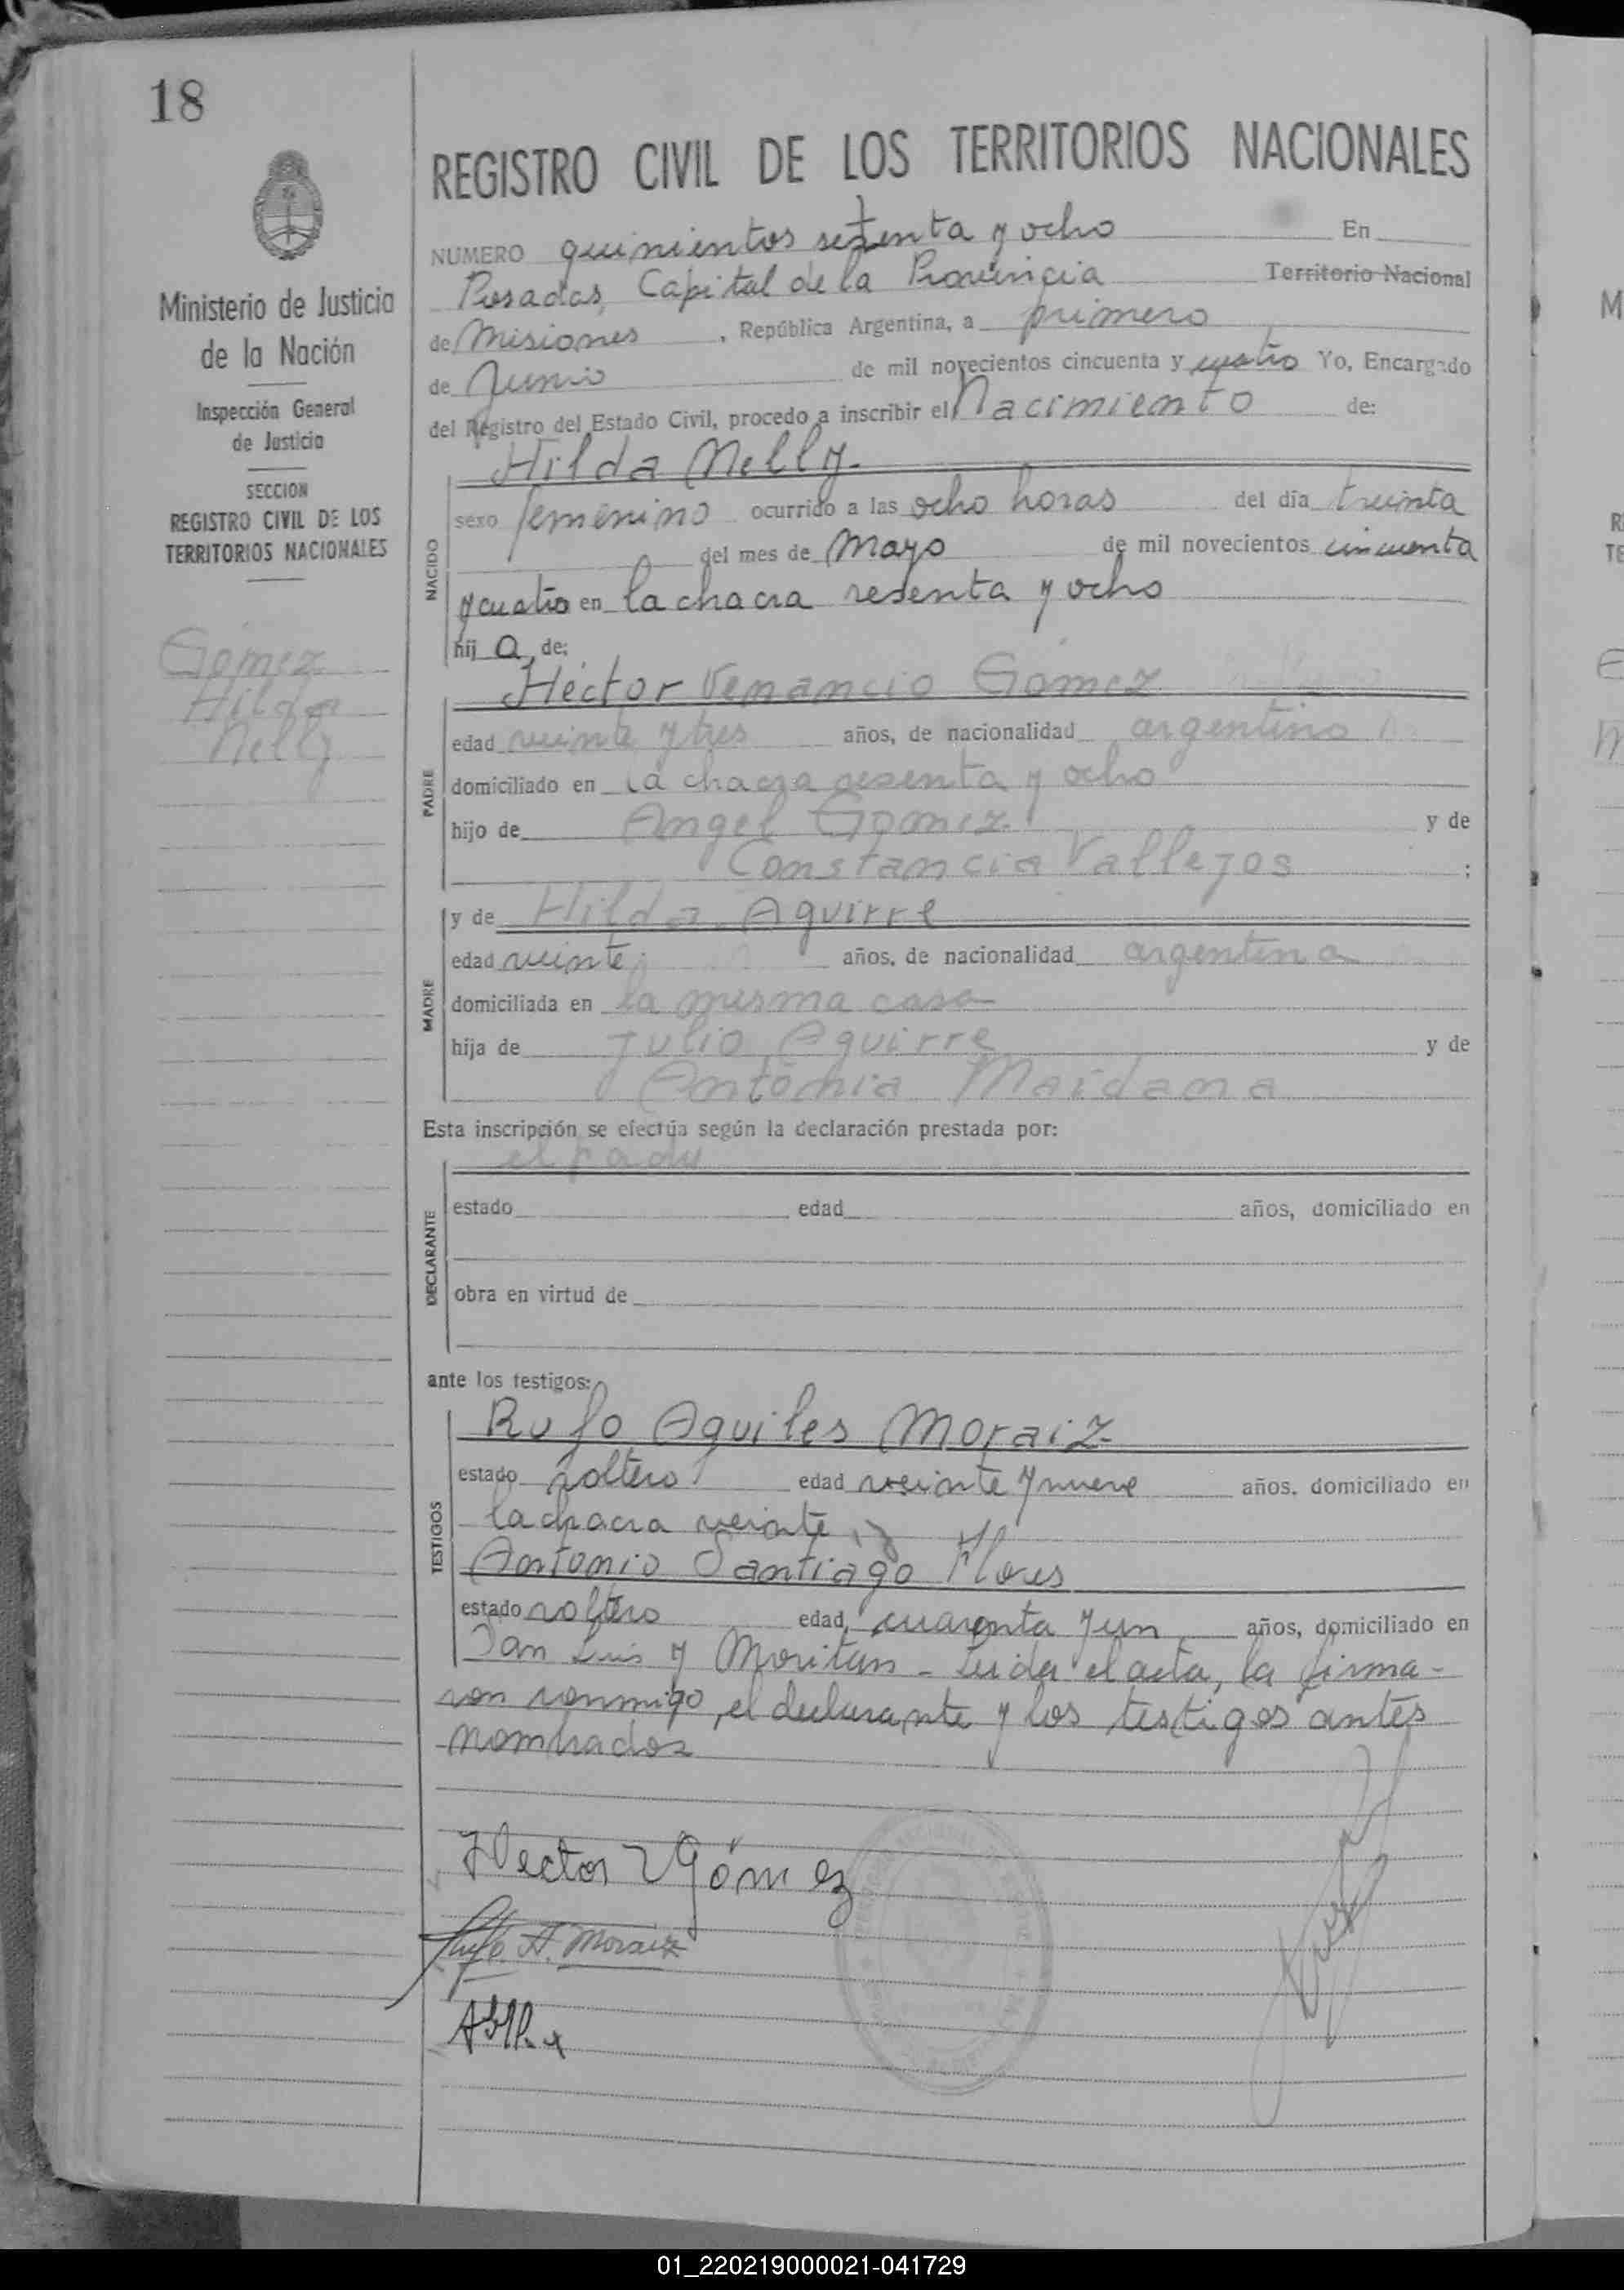 18
REGISTRO CIVIL DE LOS TERRITORIOS NACIONALES
Ministerio de Justicia
de la Nación
Inspección General
de Justicia
SECCION
REGISTRO CIVIL DE LOS
TERRITORIOS NACIONALES
Gomez
Hilda
Nelly
NUMERO quinientos setenta y ocho En
Posadas, Capital de la Provincia Territorio Nacional
de Misiones, República Argentina, a primero
de Junio de mil novecientos cincuenta y cuatro Yo, Encargado
del Registro del Estado Civil, procedo a inscribir el Nacimiento de:
NACIDO
Hilda Nelly.
sexo femenino ocurrido a las ocho horas del día treinta
del mes de Mayo de mil novecientos cincuenta
y cuatro en la chacra sesenta y ocho
hij a de:
PADRE
Héctor Venancio Gomez
edad veinte y tres años, de nacionalidad argentino
domiciliado en la chacra sesenta y ocho
hijo de Angel Gomez y de
Constancia Vallejos ;
MADRE
y de Hilda Aguirre
edad veinte años, de nacionalidad argentina
domiciliada en la misma casa
hija de Julio Aguirre y de
Antonia Maidana
Esta inscripción se efectúa según la declaración prestada por:
DECLARANTE
el padre
estado edad años, domiciliado en
obra en virtud de
ante los testigos:
TESTIGOS
Rufo Aquiles Moraiz
estado soltero edad veinte y nueve años, domiciliado en
la chacra veinte y
Antonio Santiago Flores
estado soltero edad, cuarenta y un años, domiciliado en
San Luis y Moritan - Leida el acta, la firma-
ron conmigo, el declarante y los testigos antes
nombrados
Hector V Gómez
Rufo A. Moraiz
01_220219000021-041729